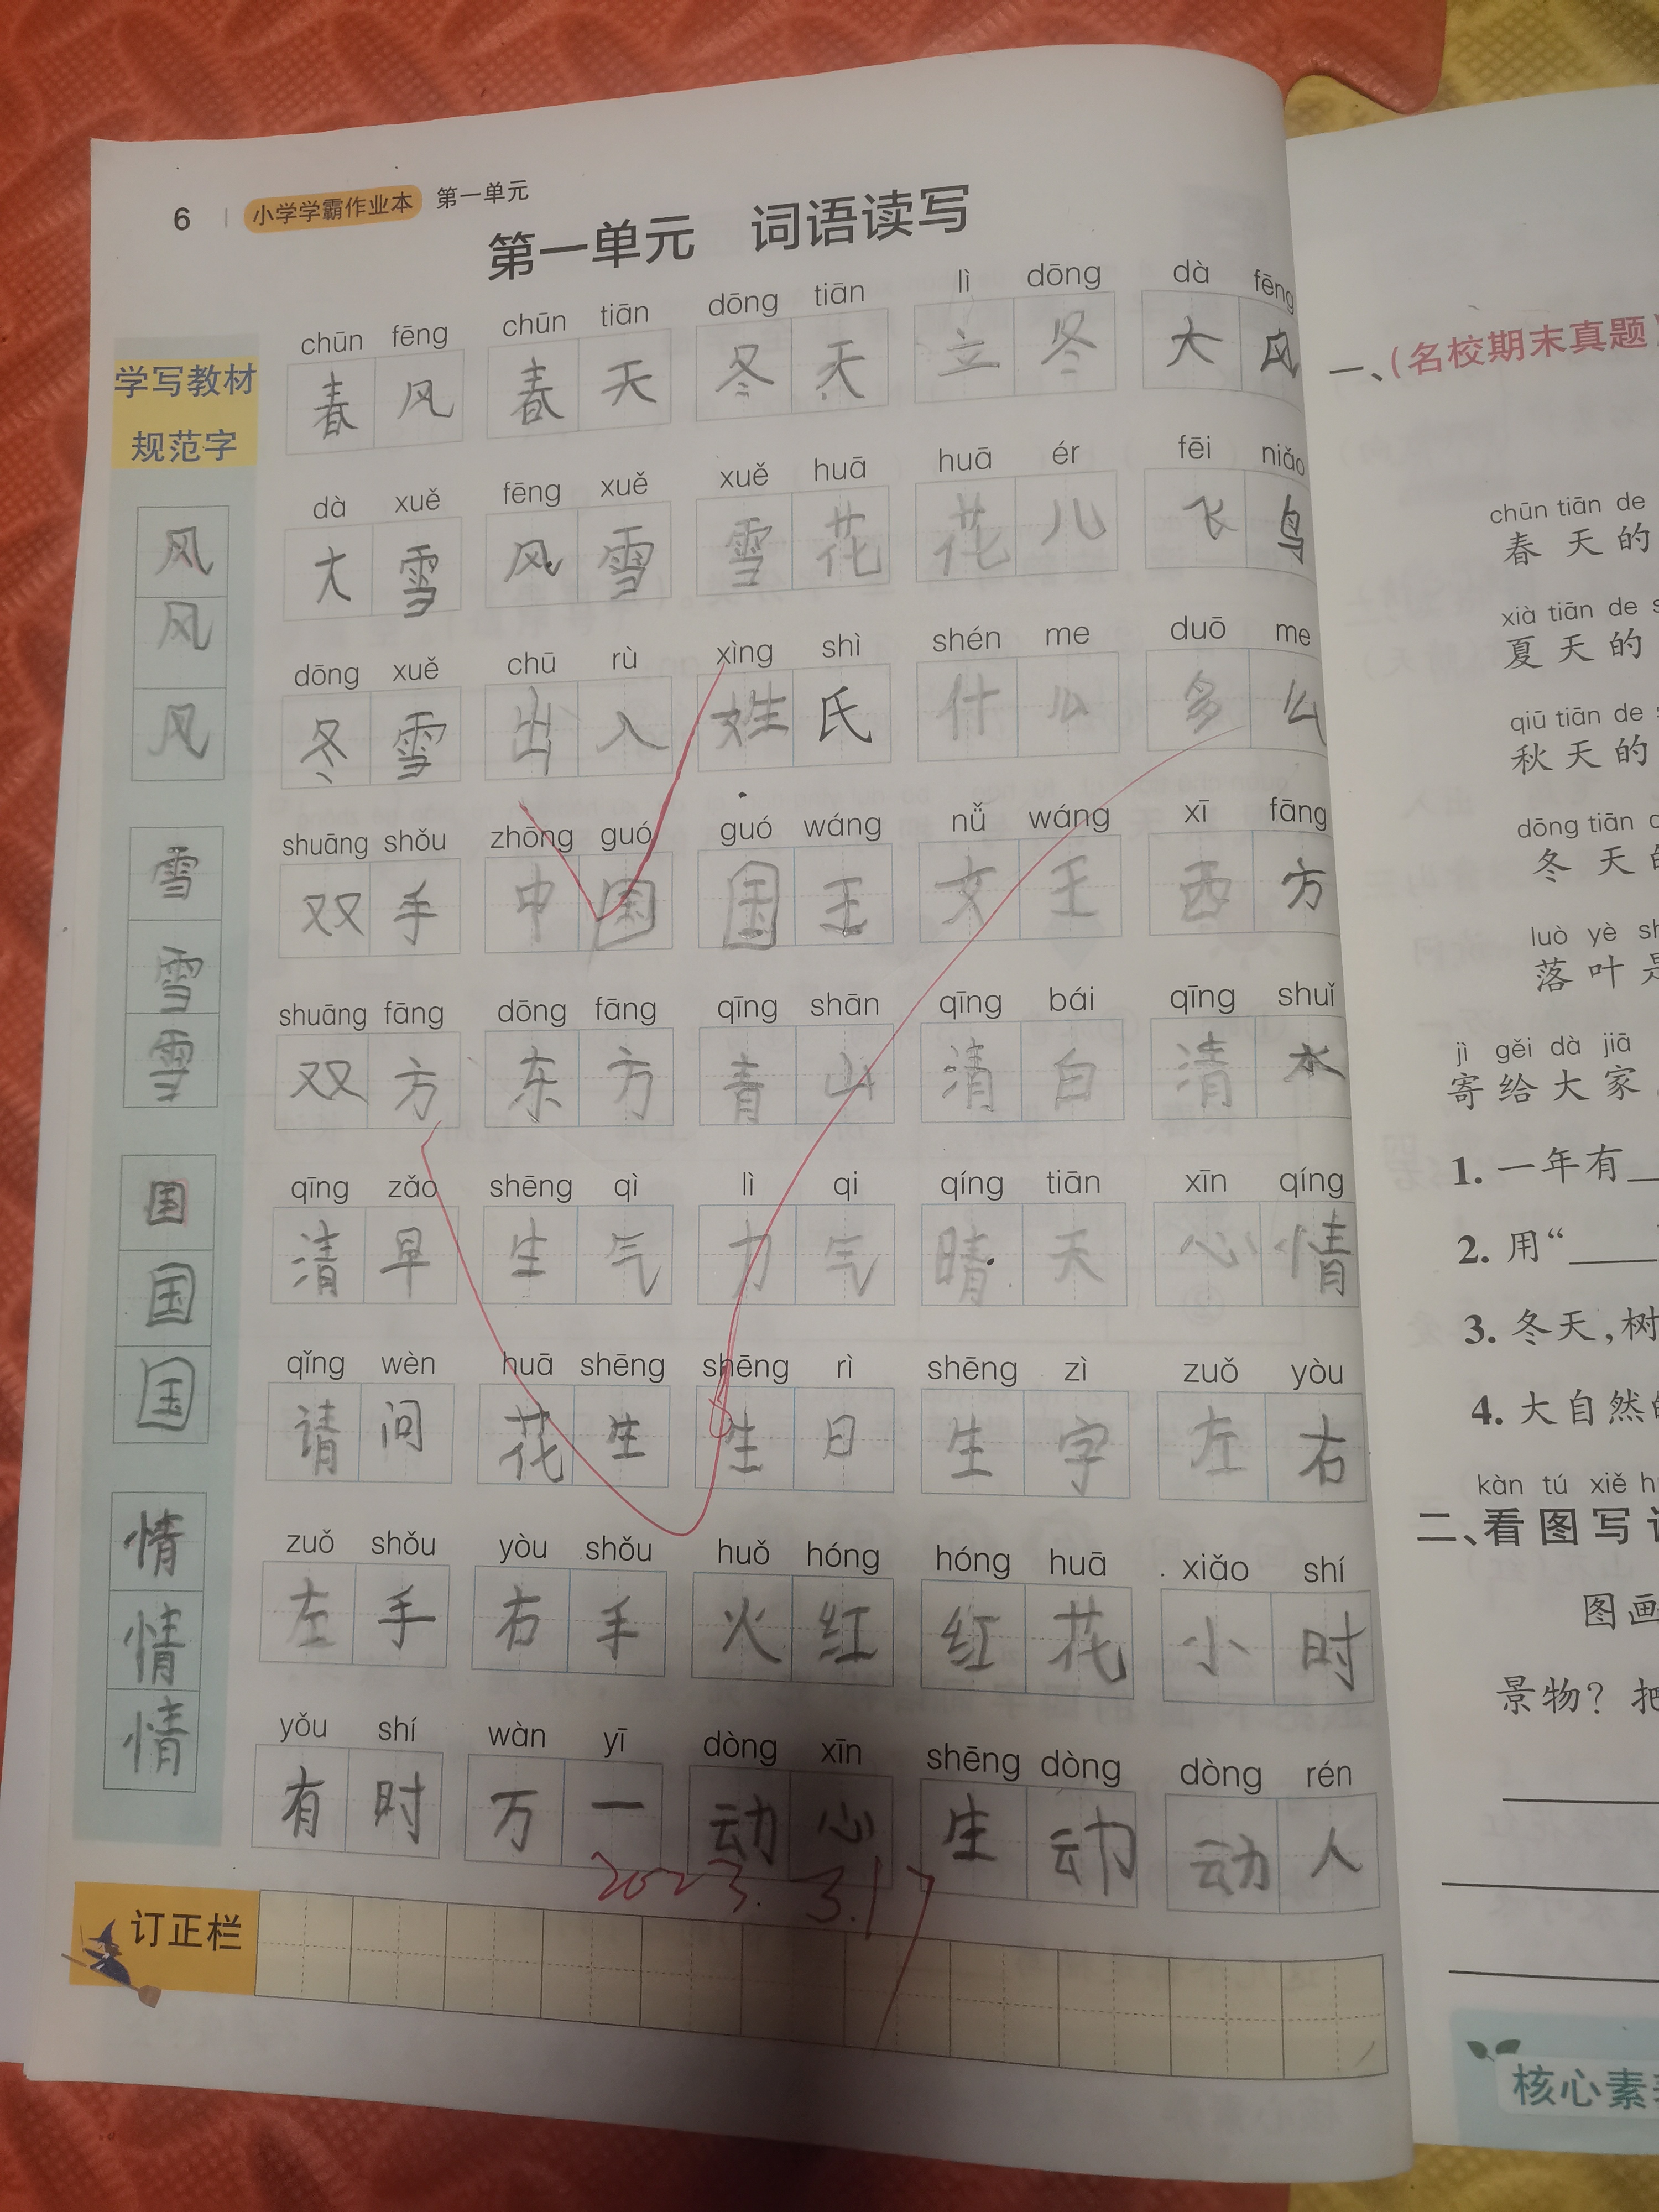 6 小学学霸作业本 第一单元
第一单元 词语读写
学写教材
规范字
风
风
风
雪
雪
雪
国
国
国
情
情
情
chūn fēng chūn tiān dōng tiān lì dōng dà fēng
春风 春天 冬天 立冬 大风
dà xuě fēng xuě xuě huā huā ér fēi niǎo
大雪 风雪 雪花 花儿 飞鸟
dōng xuě chū rù xìng shì shén me duō me
冬雪 出入 姓氏 什么 多么
shuāng shǒu zhōng guó guó wáng nǚ wáng xī fāng
双手 中国 国王 女王 西方
shuāng fāng dōng fāng qīng shān qīng bái qīng shuǐ
双方 东方 青山 清白 清水
qīng zǎo shēng qì lì qi qíng tiān xīn qíng
清早 生气 力气 晴天 心情
qǐng wèn huā shēng shēng rì shēng zì zuǒ yòu
请问 花生 生日 生字 左右
zuǒ shǒu yòu shǒu huǒ hóng hóng huā xiǎo shí
左手 右手 火红 红花 小时
yǒu shí wàn yī dòng xīn shēng dòng dòng rén
有时 万一 动心 生动 动人
2023.3.17
订正栏
一、(名校期末真题)
chūn tiān de
春天的
xià tiān de
夏天的
qiū tiān de
秋天的
dōng tiān
冬天
luò yè
落叶是
jì gěi dà jiā
寄给大家
1. 一年有
2. 用“
3. 冬天,树
4. 大自然的
kàn tú xiě
二、看图写
图画
景物？把
核心素